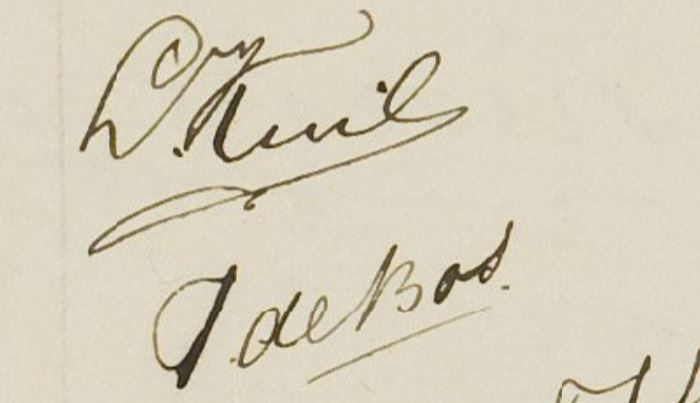 D. Kuil
J. de Bos.